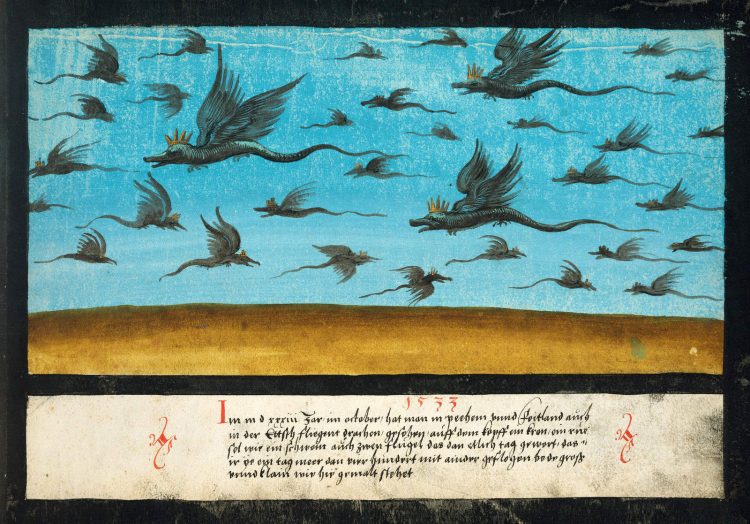 1533
Im m d xxxiii Jar im october / hat man in pechem vnnd Foitland auch
in der Ettsch fliegent trachen gesöhen / auff dem kopff ein kron / ein rüe
sel wie ein schwein auch zwen flügel das dan etlich tag gewert / das =
ir ein tag meer dan vier hundert mit ainder geflogen bede groß
vnnd klain wie hie gemalt stehet